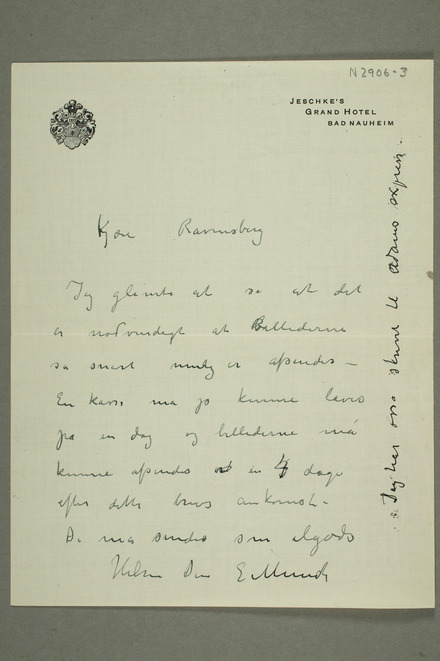 N2906-3
JESCHKE'S
GRAND HOTEL
BAD NAUHEIM
Kjære Ravensberg
Jeg glemte at si at det
er nødvendigt at Billederne
sa snart mulig er afsendes –
En kasse ma jo kunne laves
pa en dag og billederne må
kunne afsendes en 4 dage
efter dette brevs ankomst –
De ma sendes som ilgods
Hilsen Din E Munch
Jeg har også skrevet til Adams express.